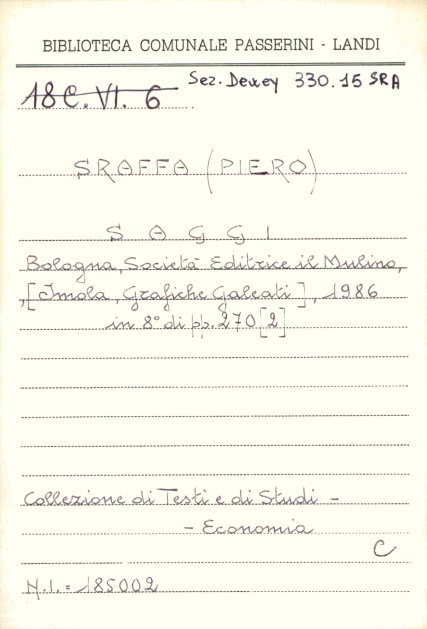 BIBLIOTECA COMUNALE PASSERINI - LANDI
Sez. Dewey 330.15 SRA
18 C. VI. 6
SRAFFA (PIERO)
SAGGI
Bologna, Società Editrice il Mulino,
,[Imola, Grafiche Galeati], 1986
in 8° di pp. 270 [2]
Collezione di Testi e di Studi -
- Economia
C
N.I. = 185002